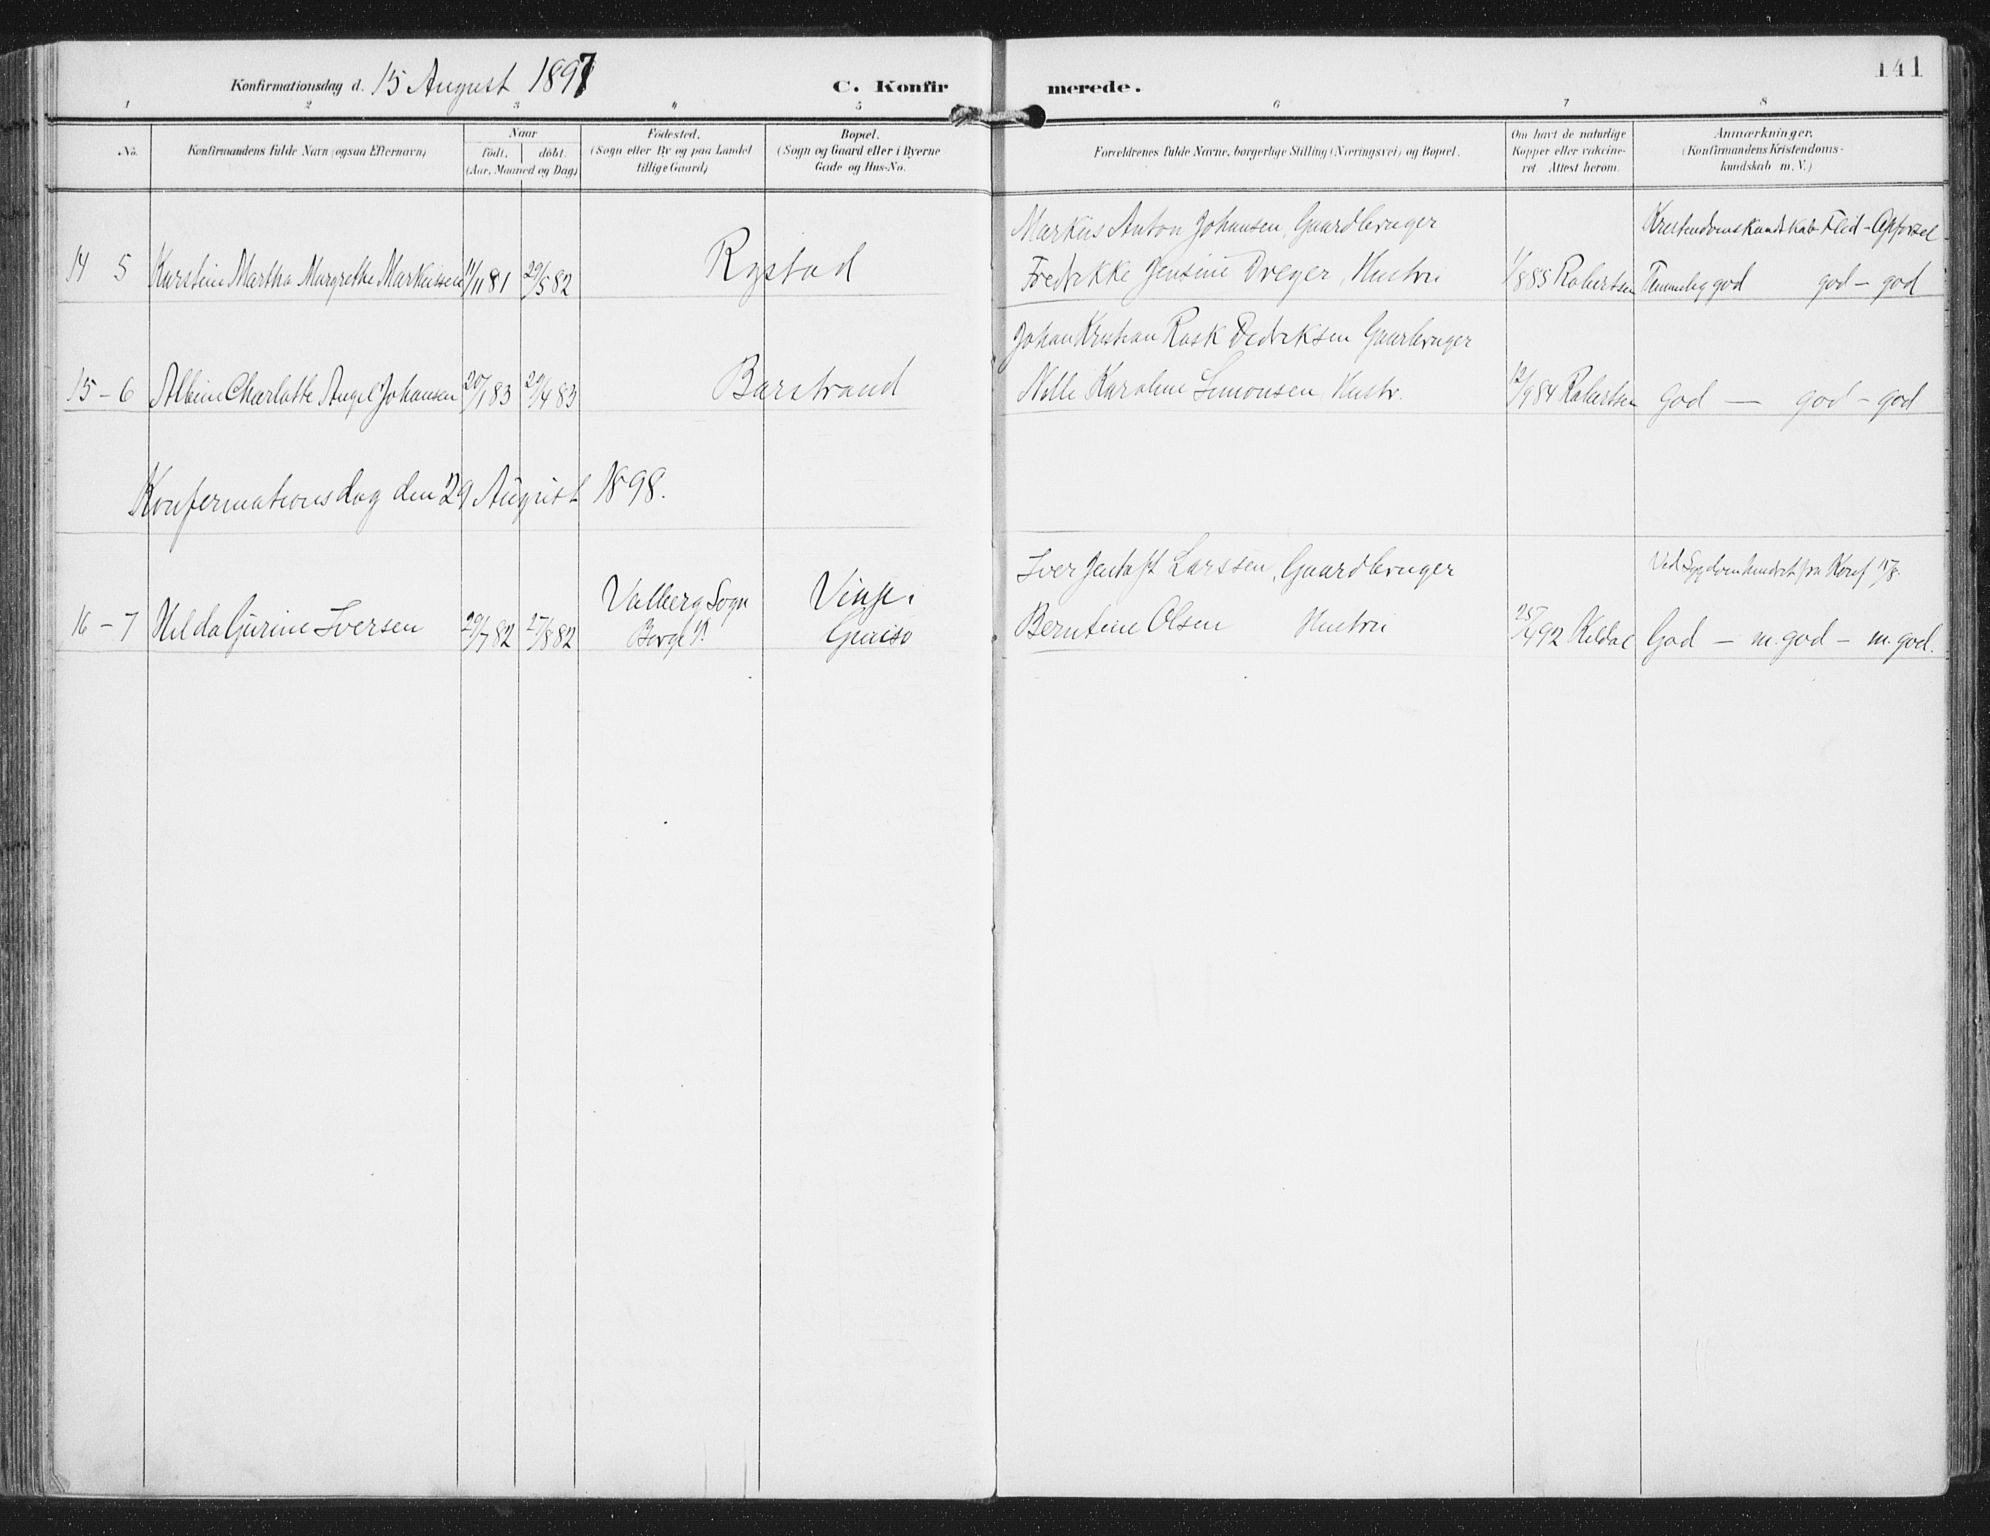 Konfirmationsdag d. 15 August 1897 C. Konfir merede. 141
1 2 3 4 5 6 7 8
No. Konfirmandens fulde Navn (ogsaa Efternavn) Naar født. døbt. (Aar, Maaned og Dag)
Fødested. (Sogn eller By og paa Landet tillige Gaard)
Bopæl. (Sogn og Gaard eller i Byerne Gade og Hus-No.
Forældrenes fulde Navne, borgerlige Stilling (Næringsvei) og Bopæl.
Om havt de naturlige Kopper eller vakcineret. Attest herom.
Anmærkninger. (Konfirmandens Kristendomskundskab m. V.)
Markus Anton Johansen, Gaardbruger Kristendomskundskab - Flid - Opførsel
14 5 Karstine Martha Margrethe Markussen 11/11 81 29/5 82 Rystad Fredrikke Jensine Dreyer, Hustru 1/8 85 Robertsen Temmelig god god - god
Johan Kristian Rask Dedriksen Gaarbruger
15 - 6 Albine Charlotte Angel Johansen 20/1 83 29/4 83 Barstrand Karoline Simonsen, Hustr. 12/9 84 Robertsen God - god - god
Konfirmationsdag den 29 August 1898.
Iver Jentoft Larssen, Gaardbruger Ved Sygdom hindret fra Konf 15/8.
Valberg Sogn
16 - 7 Hilda Gurine Iversen 29/7 82 27/8 82 Borge P. Berntine Olsen Hustru 25/4 92 Kildal God - m. god - m. god.